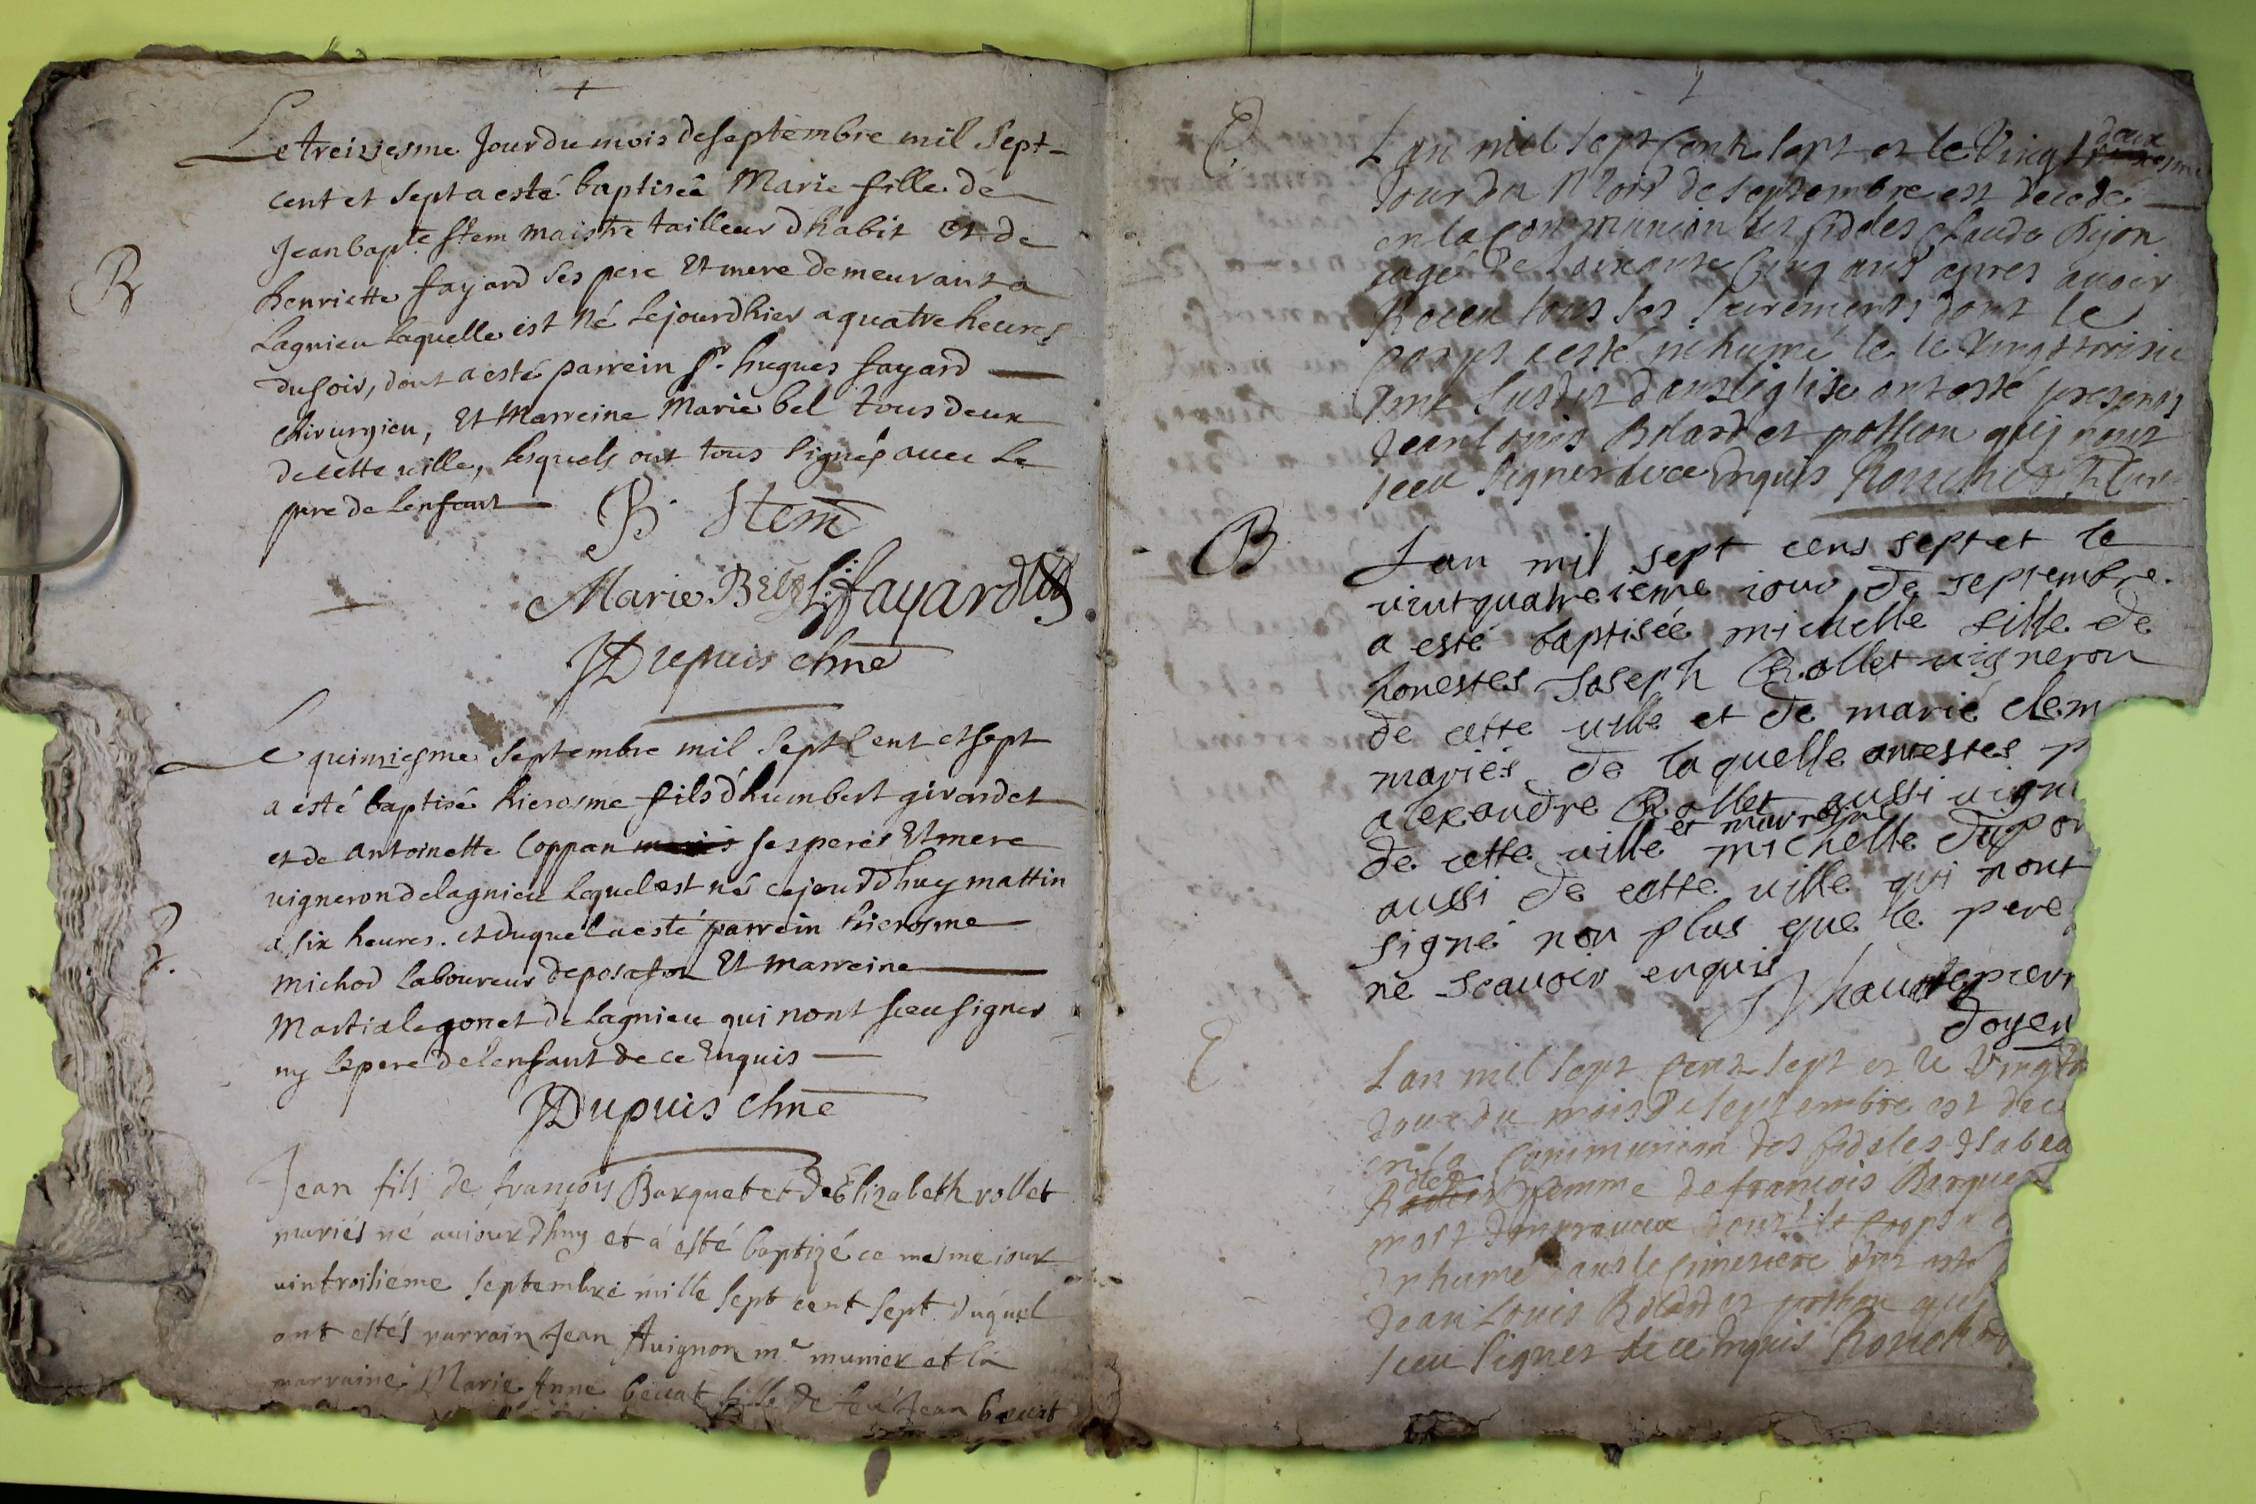 Le treiziesme Jour du mois de septembre mil sept
cent et sept a esté baptisée Marie fille de
Jean bapte Stem maistre tailleur dhabit et de
henriette fayard ses pere Et mere demeurant a
Lagnieu laquelle est né le jourdhier a quatre heures
du soir, dont a esté parrein Sr. hugues fayard
chirurgien, Et Marreine Marie bel tous deux
de cette ville, lesquels ont tous signés avec Le
pere de Lenfant
B Stem
Marie Bel fayard
Dupuis chne
Le quinziesme septembre mil sept Cent et sept
a esté baptisé hierosme fils d'humbert girardet
et de antoinette Coppan ses peres Et mere
vigneron de lagnieu lequel est nés cejourdhuy mattin
a six heures. et duquel a esté parrein hierosme
michod laboureur de posafon Et marreine
Martiale gonet de Lagnieu qui nont sceu signer
ny le pere de lenfant de ce Enquis
Dupuis chne
Jean fils de françois Barquet et de Elizabeth rollet
mariés né aujourdhuy et a esté baptizé ce mesme iour
vintroisieme septembre mille sept cent sept duquel
ont estés parrain Jean Avignon me munier et la
marraine Marie Anne beuat fille de feu Jean beuat
Lan mil sept Cent sept et le Vingt deux
Jour du Mois de septembre est decedé
en la Communion des fideles Claude Rijon
eagé de soixante Cinq ans apres avoir
Receu tous les sacrements dont le
corps a esté inhumé le le Vingt troisie
sme susdit dans leglise ont esté presents
Jean Louis Bolard et pothon quj nont
sceu signer de ce Enquis
B Lan mil sept cens sept et le
vintquatreieme iour de septembre
a esté baptisée michelle fille de
honestes Joseph Rollet vigneron
de cette ville et de marie clem
mariés de laquelle ont estes p
alexandre Rollet aussi vign
de cette ville et marreine michelle dupon
aussi de cette ville qui nont
signé non plus que le pere
ne scavoir enquis
hautepierr
doyen
Lan mil sept Cent sept et le Vingt
Jour du mois de septembre est dec
en la Communion des fidelles Isabea
Rolet femme de francois Barquet
mort dont le Corps a e
Inhumé dans le cimetiere ont esté
Jean Louis Bolard et pothon quj
sceu signer de ce Enquis